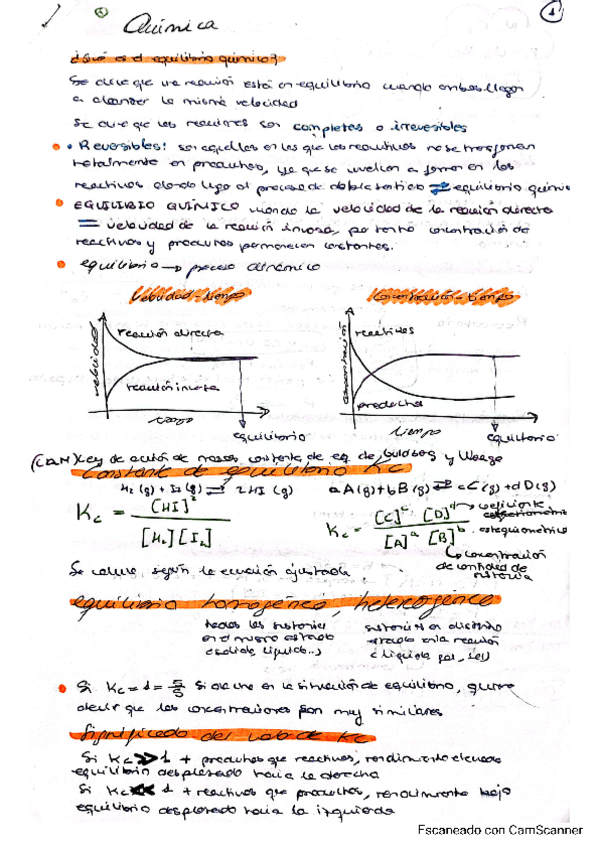 1
Química
¿Qué es el equilibrio químico?
Se dice que una reacción está en equilibrio cuando ambas llegan
a alcanzar la misma velocidad
Se dice que las reacciones son completas o irreversibles
• Reversibles: son aquellas en las que los reactivos no se transforman
totalmente en productos, ya que se vuelven a formar en los
reactivos dando lugar al proceso de doble sentido ⇌ equilibrio químic
EQUILIBRIO QUÍMICO cuando la velocidad de la reacción directa
= velocidad de la reacción inversa, por tanto concentración de
reactivos y productos permanecen constantes.
equilibrio → proceso dinámico
Velocidad-tiempo
Concentración-tiempo
velocidad
reacción directa
reacción inversa
tiempo
equilibrio
concentración
reactivos
productos
tiempo
equilibrio
Ley de acción de masas, constante de eq. de Guldberg y Waage
Constante de equilibrio Kc
H₂ (g) + I₂ (g) ⇌ 2HI (g)
Kc = [HI]² / [H₂][I₂]
a A(g) + b B(g) ⇌ c C(g) + d D(g)
Kc = [C]ᶜ [D]ᵈ / [A]ᵃ [B]ᵇ
→ coeficiente
estequiométrico
concentración
de cantidad de
sustancia
Se calcula según la ecuación ajustada
equilibrio homogéneo, heterogéneo
todas las sustancias
en el mismo estado
(sólido, líquido..)
sustancias en distinto
estado en la reacción
(líquido, gas, sol)
Si Kc = 1 = 5/5 Si ocurre en la situación de equilibrio, quiere
decir que las concentraciones son muy similares
Significado del valor de Kc
Si Kc >> 1 + productos que reactivos, rendimiento elevado
equilibrio desplazado hacia la derecha
Si Kc << 1 + reactivos que productos, rendimiento bajo
equilibrio desplazado hacia la izquierda
Escaneado con CamScanner